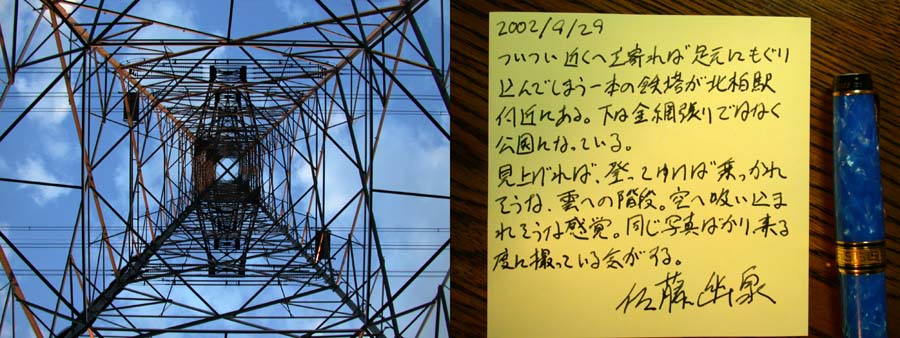 2002/9/29
ついつい近くへ立寄れば足元にもぐり
込んでしまう一本の鉄塔が北柏駅
付近にある。下は金網張りではなく
公園になっている。
見上げれば、登ってゆけば乗っかれ
そうな、雲への階段。空へ吸い込ま
れそうな感覚。同じ写真ばかり、来る
度に撮っている気がする。
佐藤 泉